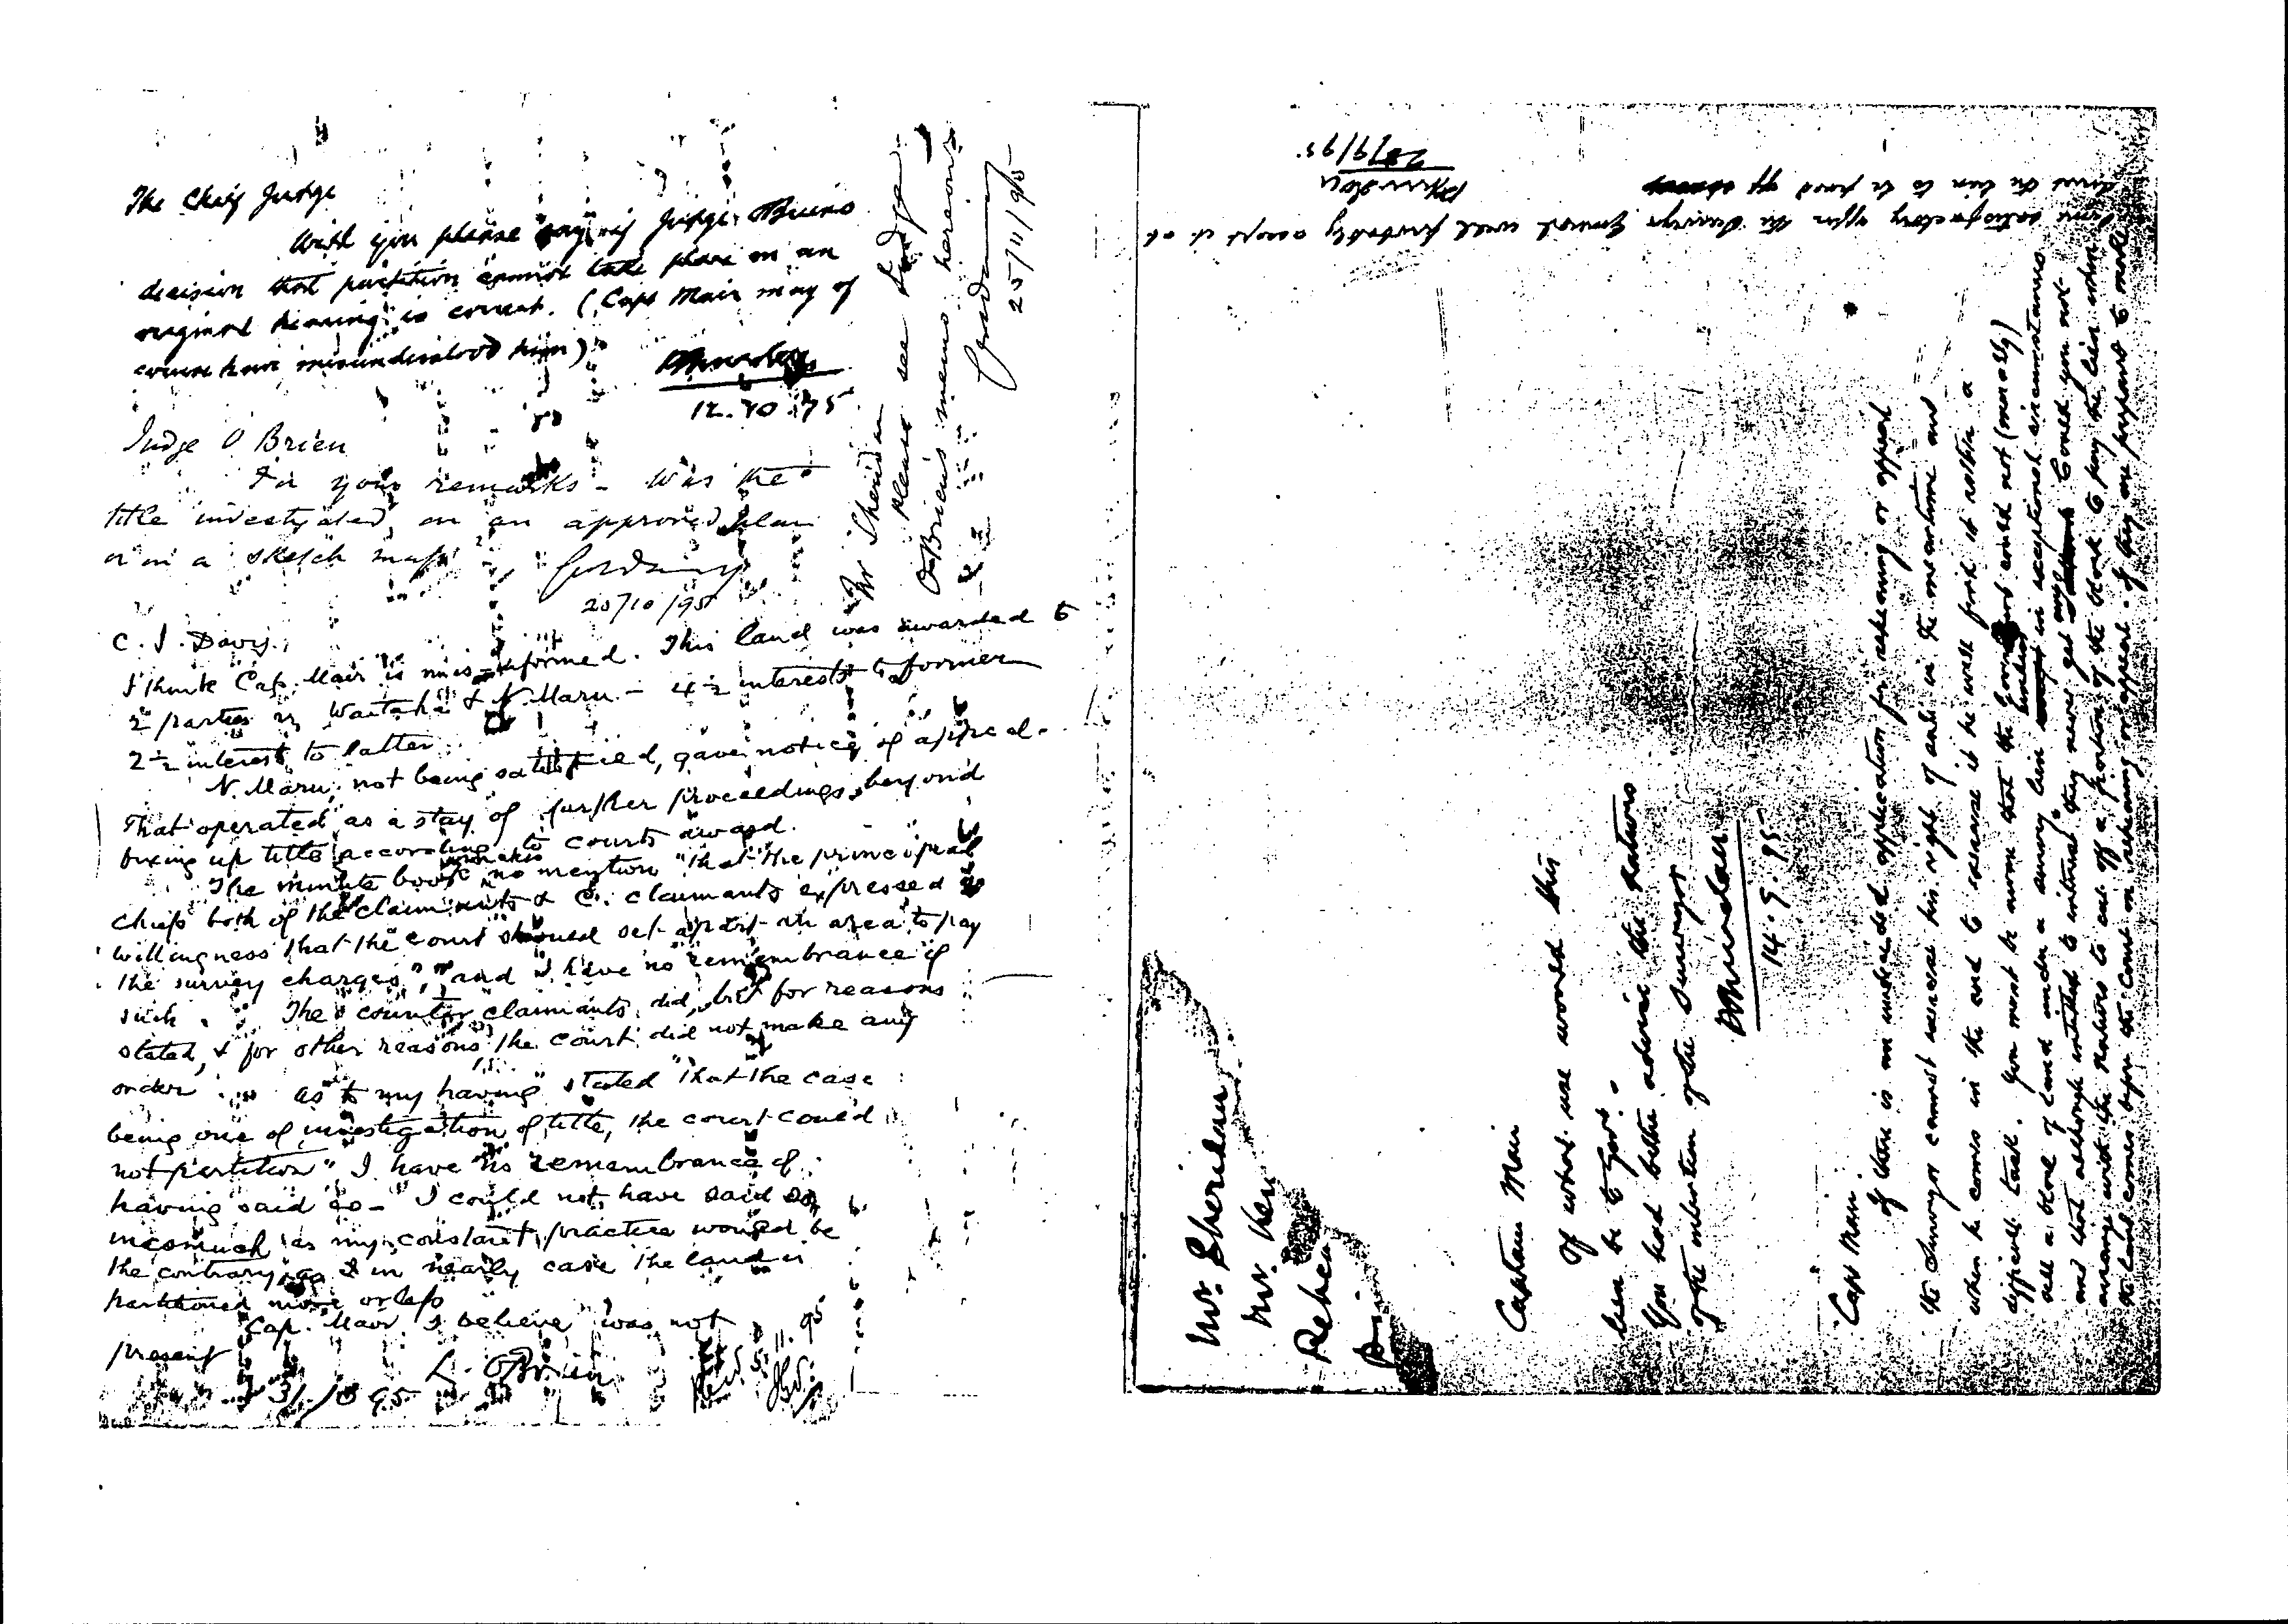 The Chief Judge
Will you please say if Judge O'Brien's
decision that partition cannot take place on an
original hearing is correct. (Capt Mair may of
course have misunderstood him)
12.10.95
Judge O Brien
For your remarks - Was the
title investigated on an approved plan
or on a sketch map
20/10/95
C. J. Davy.
I think Cap. Mair is mis-informed. This land was awarded to
2 parties Waitaha & N. Maru - 4½ interests to former
2½ interest to latter.
N. Maru, not being satisfied, gave notice of appeal.
That operated as a stay of further proceedings, beyond
fixing up title according to Courts award.
The minute book makes no mention "that the principal
chiefs both of the claimants & C. claimants expressed a
willingness that the Court should set apart an area to pay
the survey charges", and I have no remembrance of
such. The counter claimants did, but for reasons
stated, & for other reasons the Court did not make any
order. As to my having stated "that the case
being one of investigation of title, the court could
not partition" I have no remembrance of
having said so - I could not have said so,
inasmuch as my constant practice would be
the contrary, as in nearly case the land is
partitioned more or less
Cap. Mair I believe was not
present
L. OBrien
31/10 95
5.11.95
Mr Sheridan
Please see Judge
O'Brien's memo hereon
25/11/95
Mr. Sheridan
Mr.
Captain Mair
Of what use would this
lien be to Govt.
You had better advise the natives
of the intention of the Surveyor
14.9.95
Capt Mair.
If there is an undecided application for rehearing or appeal
the Surveyor cannot exercise his right of sale in the meantime and
when he comes in the end to exercise it he will find it rather a
difficult task. You must be aware that the Government could not (morally)
sell a block of land under a survey lien in exceptional circumstances
and that although entitled to interest they never get any. Could you not
arrange with the Natives to cut off a portion of the block to pay the lien when
the land comes before the Court on rehearing or appeal. If they are prepared to make
some satisfactory offer the Surveyor General will probably accept it and
allow the lien to be paid off
20/9/95